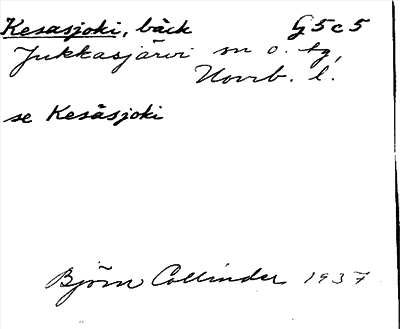 Kesasjoki, bäck G 5 c 5
Jukkasjärvi sn o. tg,
Norrb. l.
se Kesäsjoki
Björn Collinder 1937